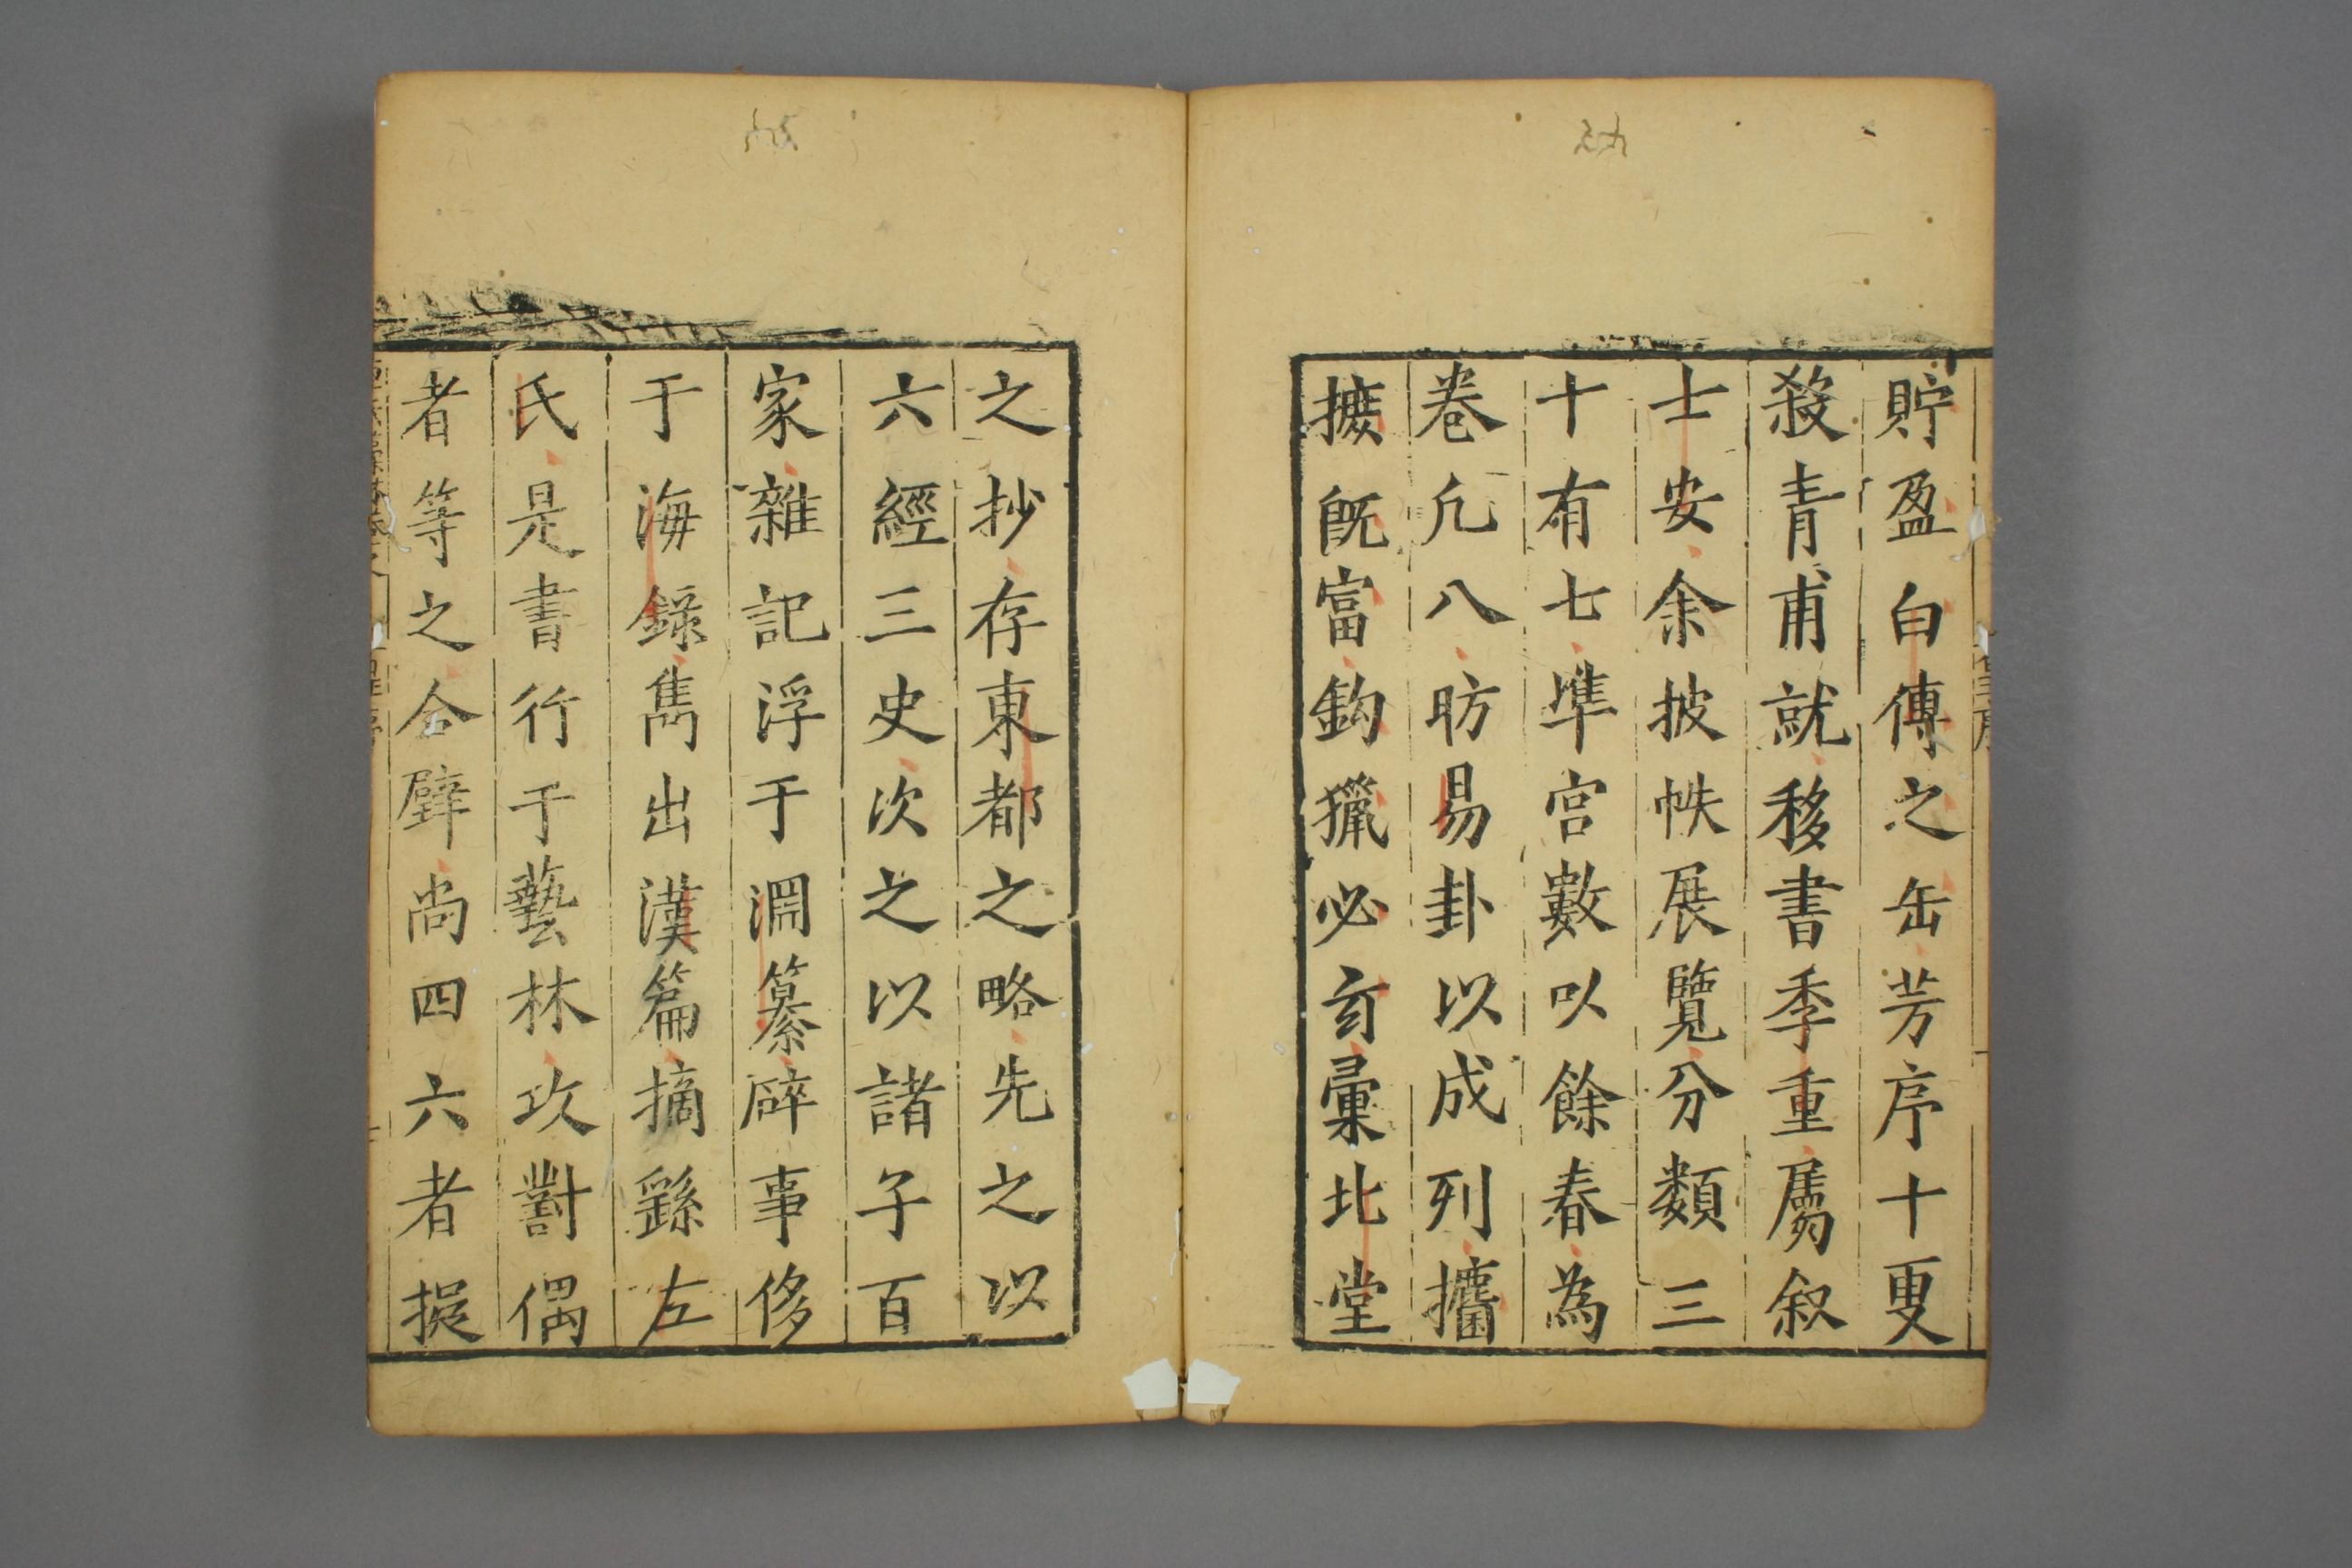 貯盈白傳之缶芳序十更
殺青甫就移書季重屬叙
士安余披帙展覽分類三
十有七準宫數以餘春為
卷凢八昉易卦以成列攟
摭旣富鈎獵必亥彙北堂
之抄存東都之略先之以
六經三史次之以諸子百
家雜記浮于淵纂辟事侈
于海錄雋出漢篇摘繇左
氏是書行于藝林攻對偶
者等之合璧尚四六者挹